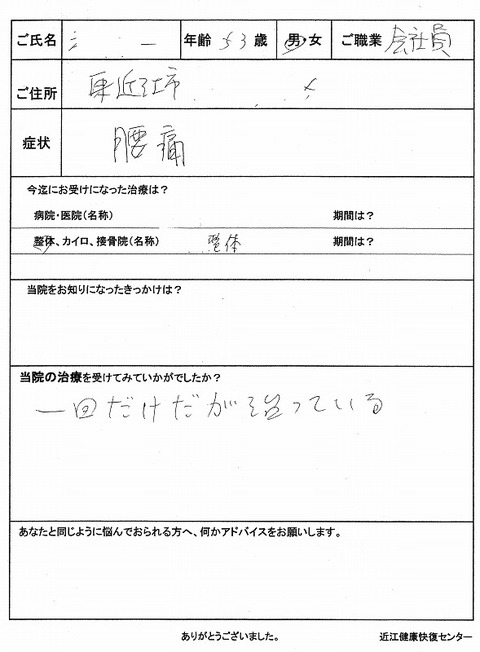 ご氏名 年齢 53 歳 男・女 ご職業 会社員
ご住所 東近江市
症状 腰痛
今迄にお受けになった治療は？
病院・医院（名称） 期間は？
整体、カイロ、接骨院（名称） 整体 期間は？
当院をお知りになったきっかけは？
当院の治療を受けてみていかがでしたか？
一回だけだが治っている
あなたと同じように悩んでおられる方へ、何かアドバイスをお願いします。
ありがとうございました。 近江健康快復センター